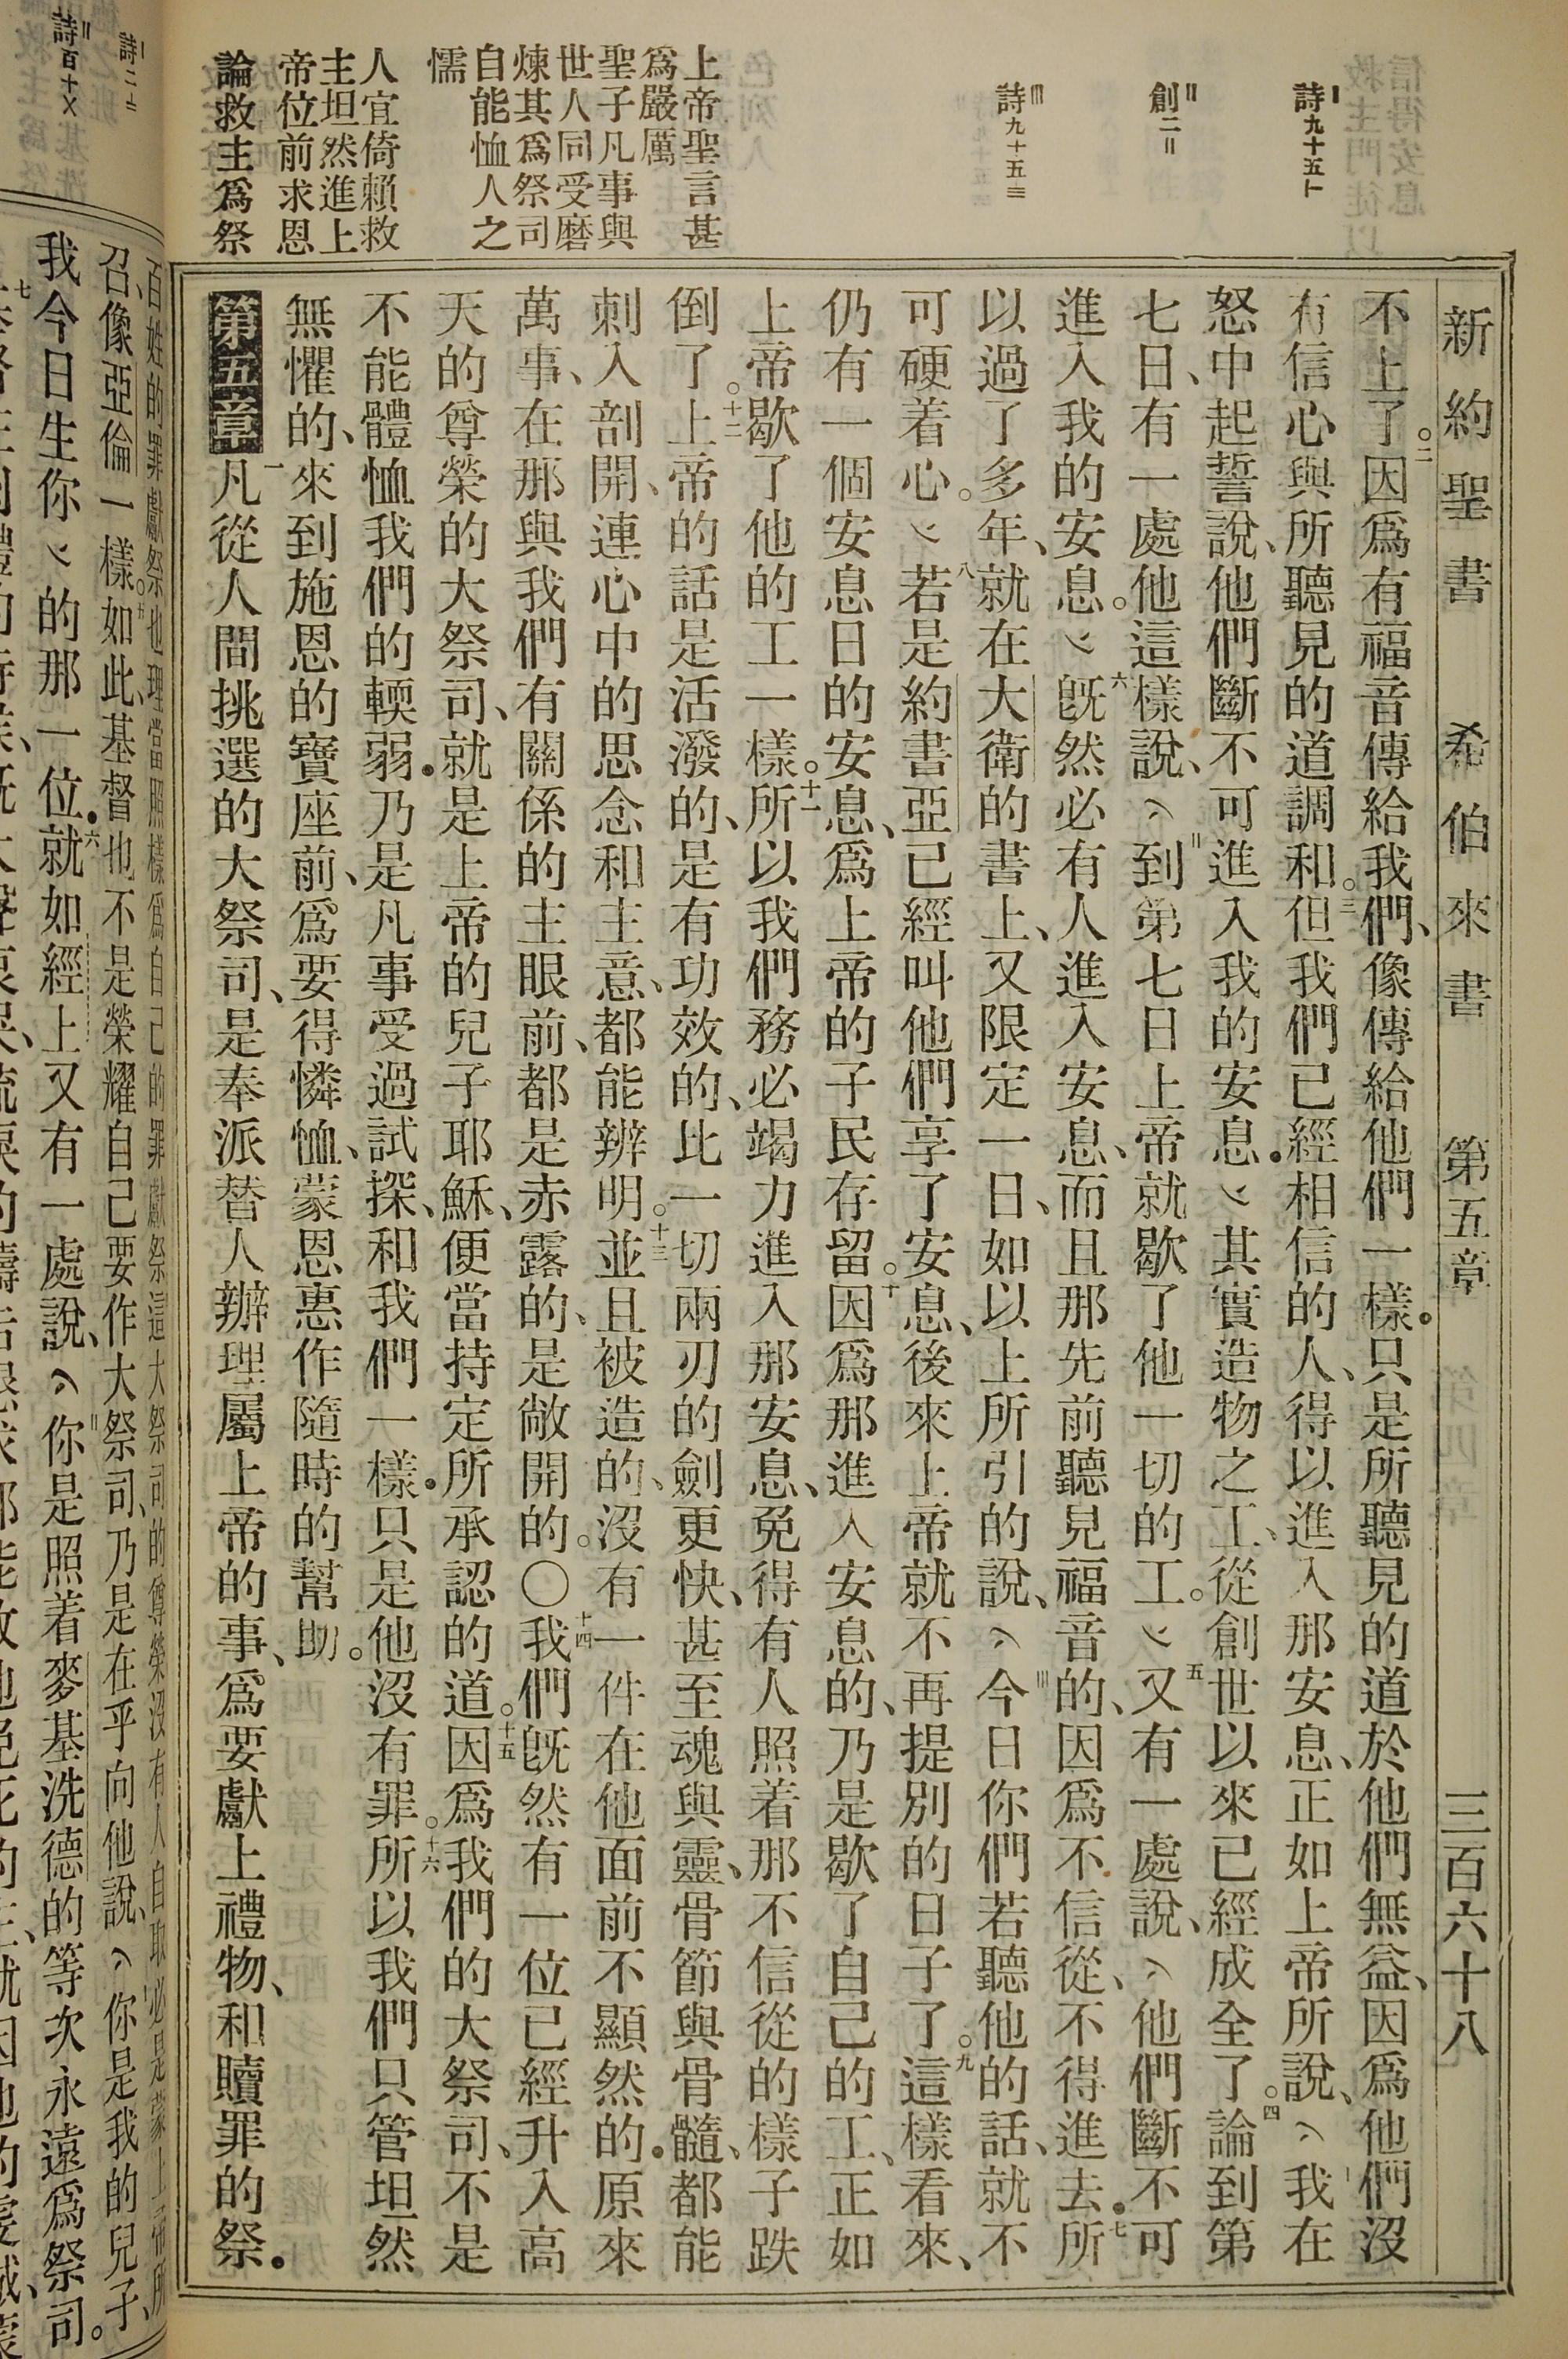 新約聖書 希伯來書 第五章 三百六十八
詩九十五
創二
詩九十五
上帝聖言甚
爲嚴厲
聖子凡事與
世人同受磨
煉其爲祭司
自能恤人之
懦
人宜倚賴救
主坦然進上
帝位前求恩
論救主爲祭
不上了。二因爲有福音傳給我們、像傳給他們一樣．只是所聽見的道於他們無益、因爲他們沒
有信心與所聽見的道調和。三但我們已經相信的人、得以進入那安息、正如上帝所說、我在
怒中起誓說、他們斷不可進入我的安息．其實造物之工、從創世以來已經成全了。四論到第
七日、有一處他這樣說、到第七日上帝就歇了他一切的工。五又有一處說、他們斷不可
進入我的安息。六旣然必有人進入安息、而且那先前聽見福音的、因爲不信從、不得進去．七所
以過了多年、就在大衛的書上、又限定一日、如以上所引的說、今日你們若聽他的話、就不
可硬着心。八若是約書亞已經叫他們享了安息、後來上帝就不再提別的日子了。九這樣看來、
仍有一個安息日的安息、爲上帝的子民存留。十因爲那進入安息的、乃是歇了自己的工、正如
上帝歇了他的工一樣。十一所以我們務必竭力進入那安息、免得有人照着那不信從的樣子跌
倒了。十二上帝的話是活潑的、是有功效的、比一切兩刃的劍更快、甚至魂與靈、骨節與骨髓、都能
刺入剖開、連心中的思念和主意、都能辨明。十三並且被造的、沒有一件在他面前不顯然的．原來
萬事、在那與我們有關係的主眼前、都是赤露的、是敞開的。〇十四我們旣然有一位已經升入高
天的尊榮的大祭司、就是上帝的兒子耶穌、便當持定所承認的道。十五因爲我們的大祭司、不是
不能體恤我們的輭弱．乃是凡事受過試探、和我們一樣．只是他沒有罪。十六所以我們只管坦然
無懼的、來到施恩的寶座前、爲要得憐恤、蒙恩惠作隨時的幫助。
第五章 一凡從人間挑選的大祭司、是奉派替人辦理屬上帝的事、爲要獻上禮物、和贖罪的祭．
詩二
詩百十
百姓的罪獻祭也理當照樣爲自己的罪獻祭這大祭司的尊榮沒有人自取必是蒙上帝所
召、像亞倫一樣。五如此、基督也不是榮耀自己要作大祭司、乃是在乎向他說、你是我的兒子、
我今日生你的那一位．六就如經上又有一處說、你是照着麥基洗德的等次永遠爲祭司。